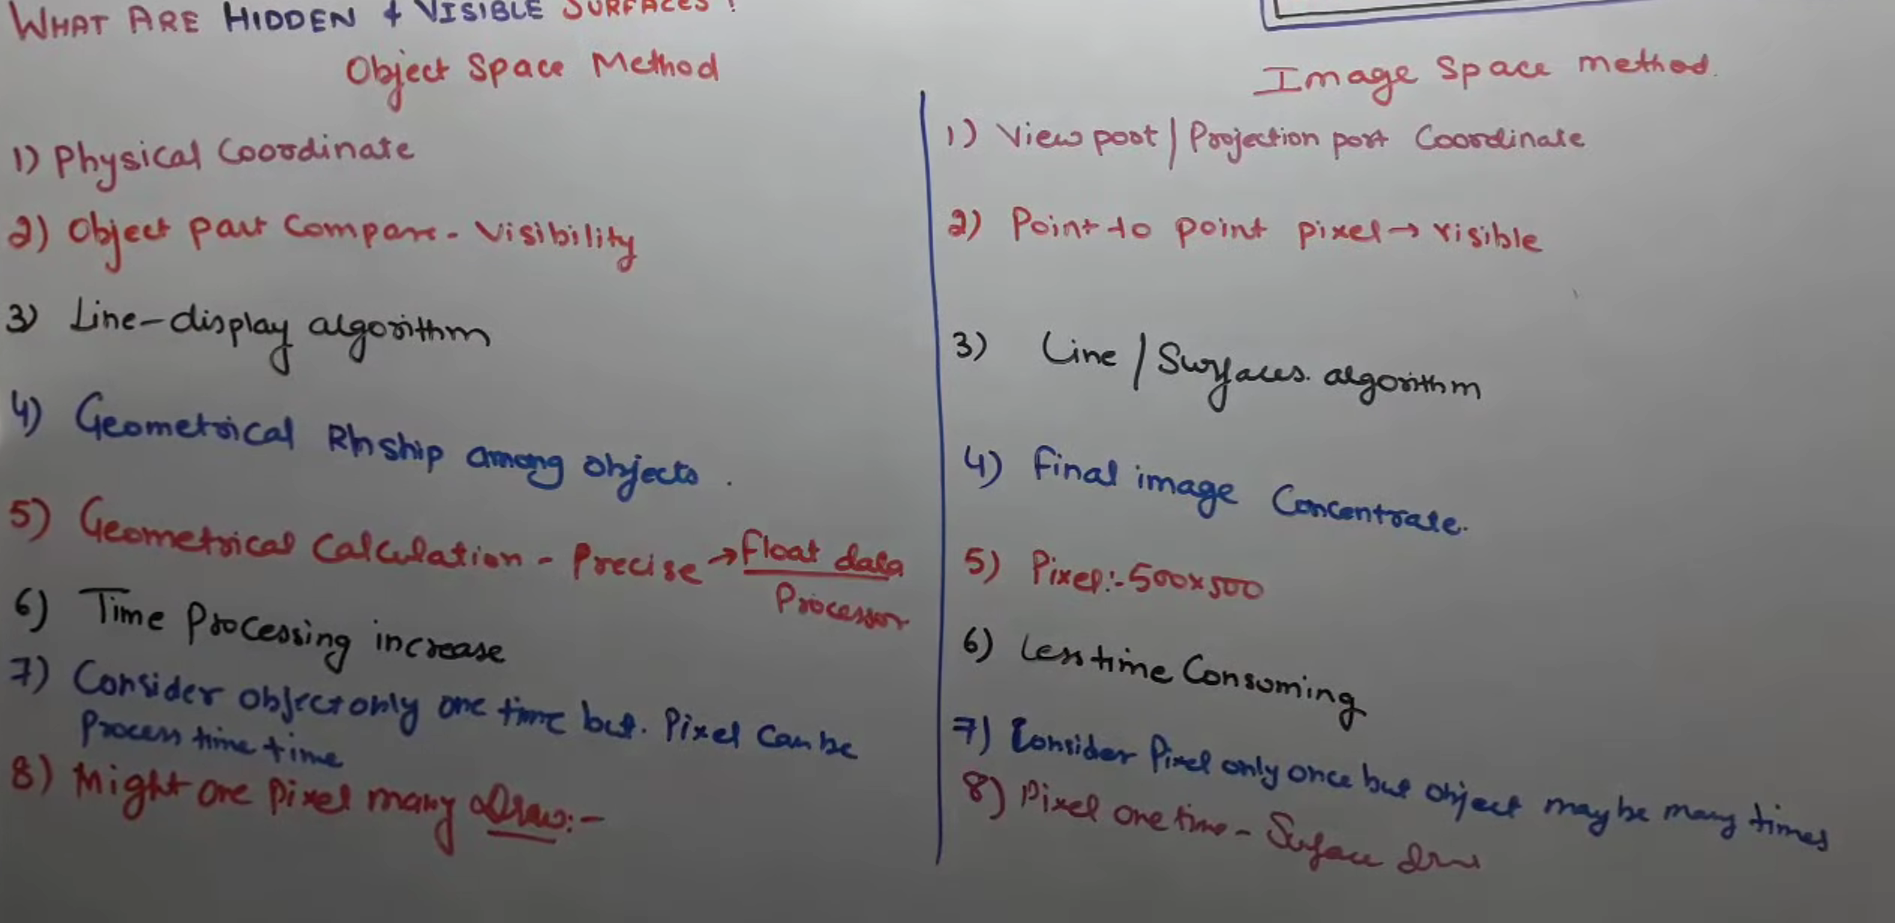 WHAT ARE HIDDEN & VISIBLE SURFACES?
Object Space Method
1) Physical Coordinate
2) Object part Compare - Visibility
3) Line-display algorithm
4) Geometrical Rlnship among objects.
5) Geometrical Calculation - Precise → Float data
Processor
6) Time Processing increase
7) Consider object only one time but. Pixel can be
Process time time
8) Might one pixel many draw:-
Image Space method.
1) View port / Projection port Coordinate
2) Point to point pixel → visible
3) Line / Surfaces. algorithm
4) Final image Concentrate.
5) Pixel:- 500x500
6) Less time Consuming
7) Consider Pixel only once but object may be many times
8) Pixel one time - Surface